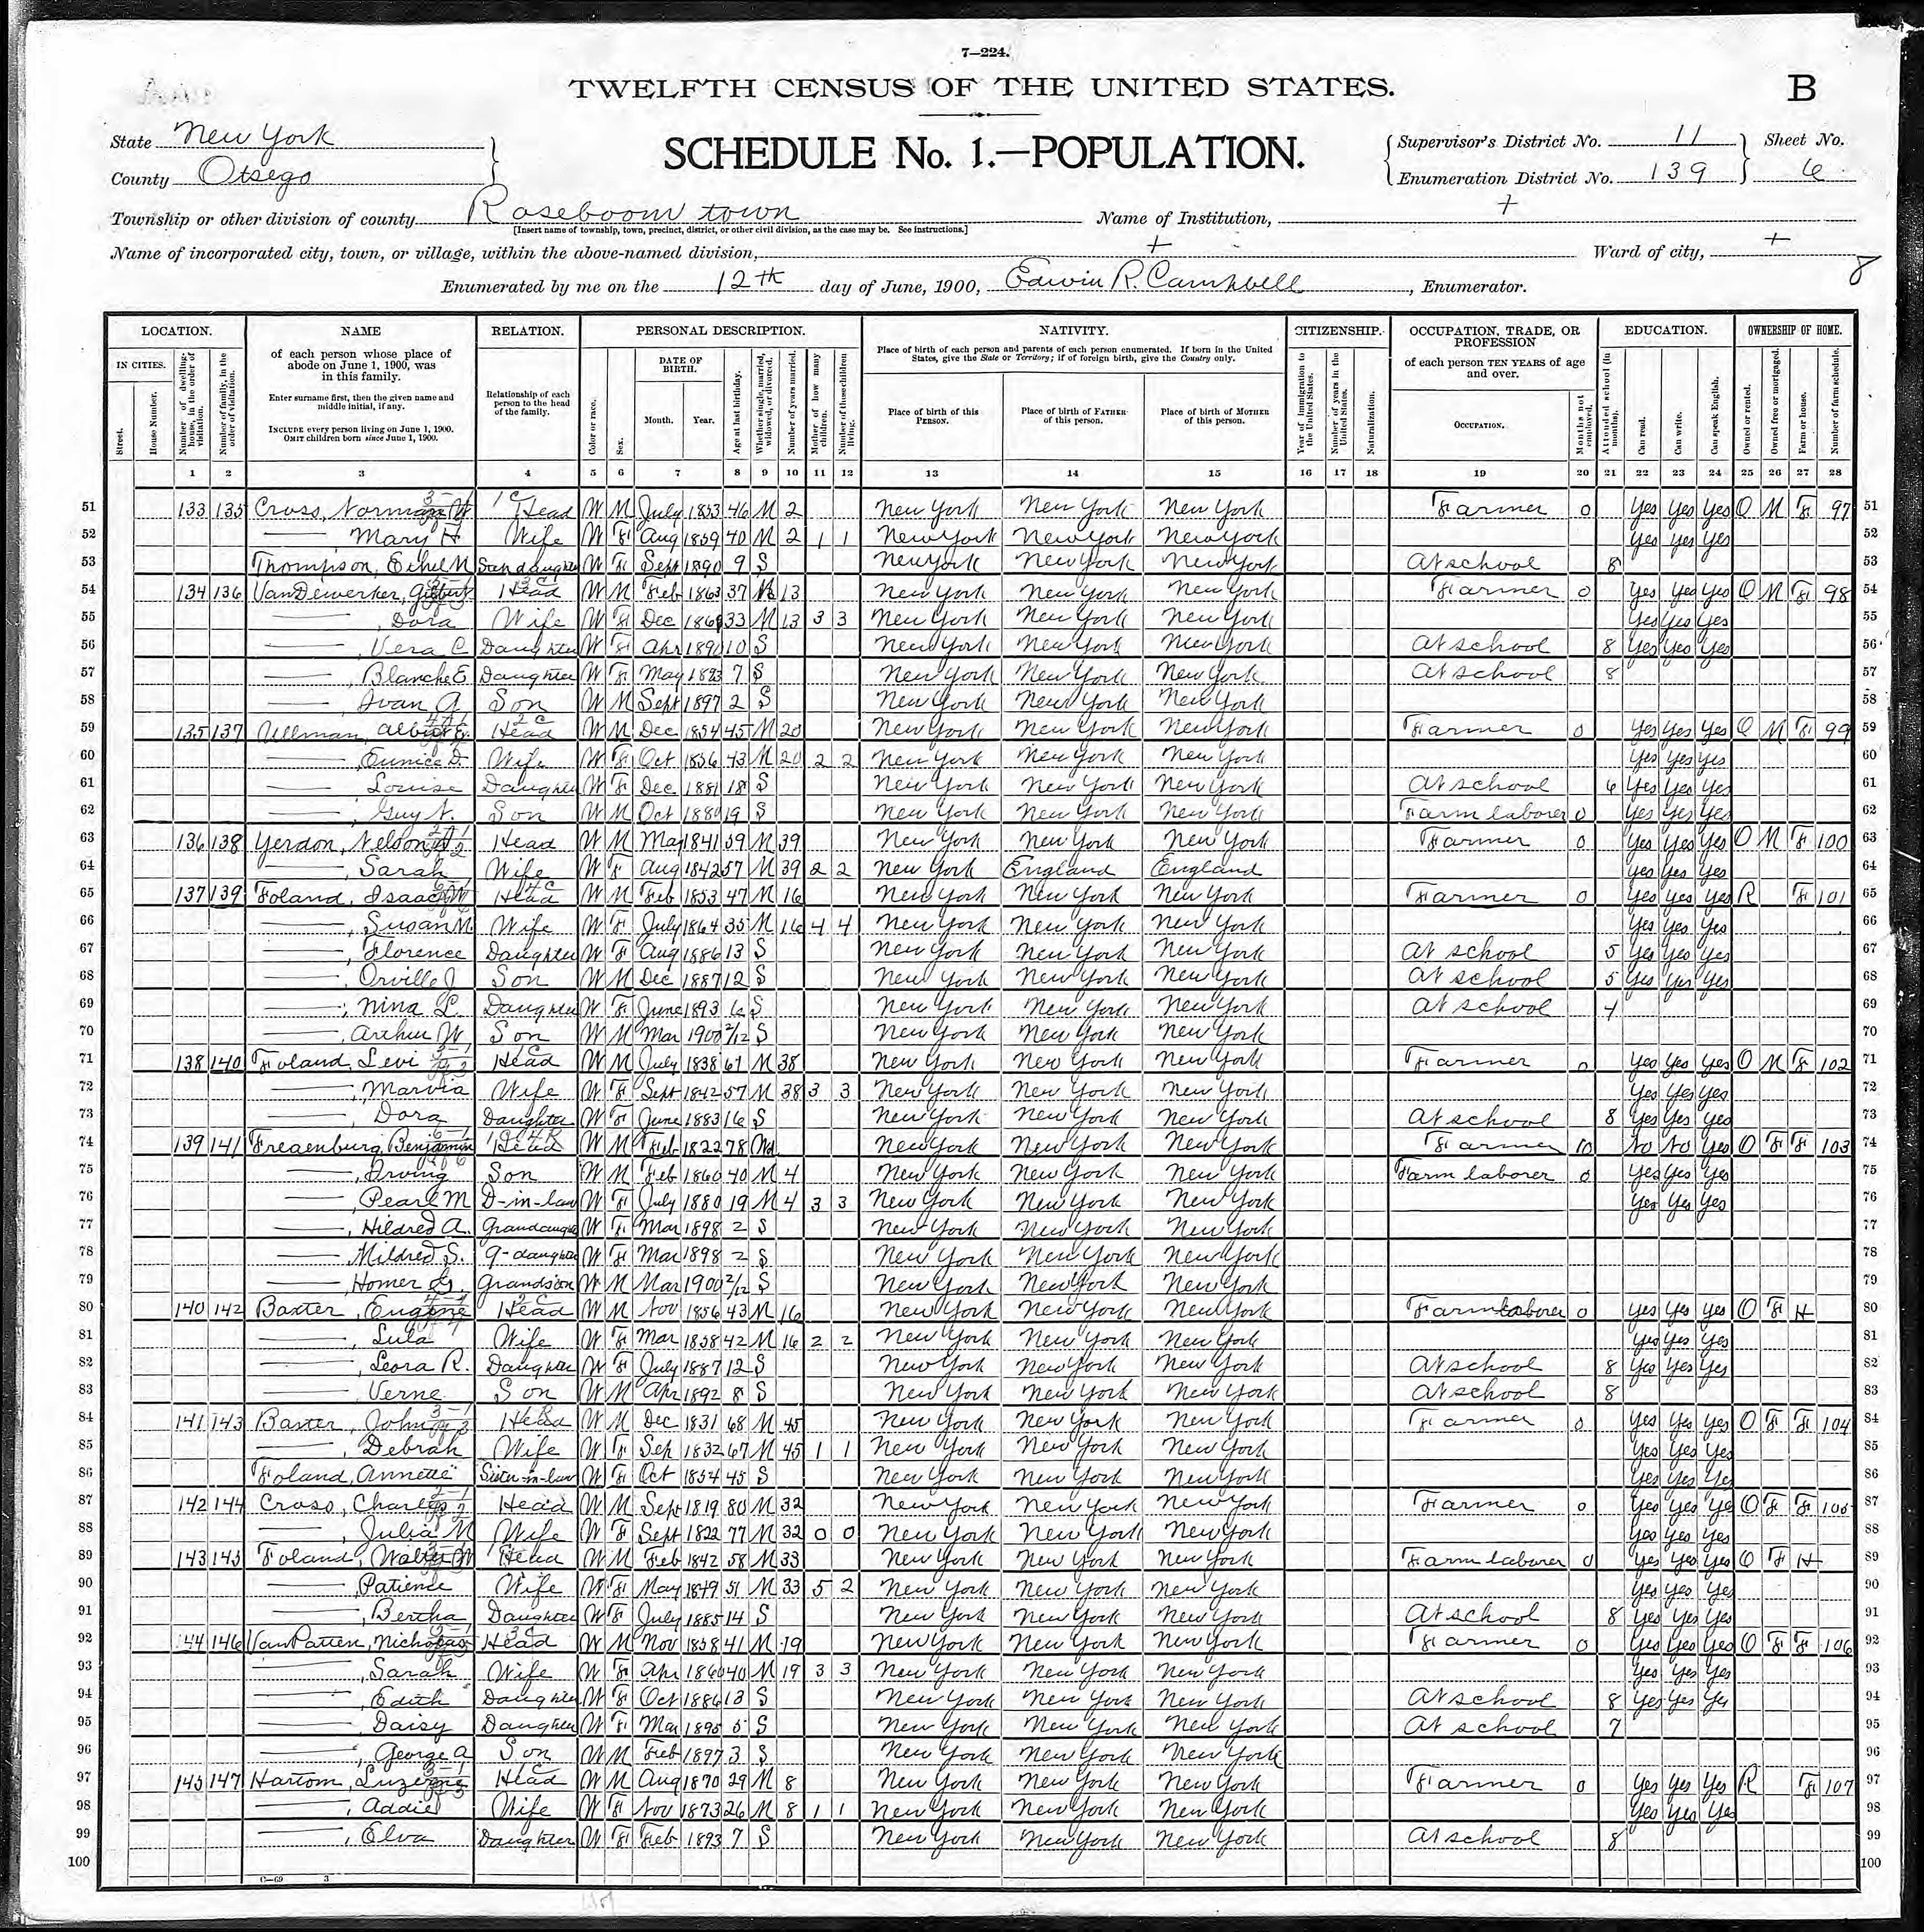 7—224.
TWELFTH CENSUS OF THE UNITED STATES.
B
State New York
SCHEDULE No. 1.—POPULATION.
Supervisor's District No. 11
Sheet No.
County Otsego
Enumeration District No. 139
6
Township or other division of county Roseboom town
Name of Institution, +
[Insert name of township, town, precinct, district, or other civil division, as the case may be. See instructions.]
Name of incorporated city, town, or village, within the above-named division, +
Ward of city, +
8
Enumerated by me on the 12th day of June, 1900, Edwin R. Campbell, Enumerator.
LOCATION. NAME RELATION. PERSONAL DESCRIPTION. NATIVITY. CITIZENSHIP. OCCUPATION, TRADE, OR PROFESSION EDUCATION. OWNERSHIP OF HOME.
IN CITIES.
Street.
House Number.
Number of dwelling-house, in the order of visitation.
Number of family, in the order of visitation.
of each person whose place of abode on June 1, 1900, was in this family.
Enter surname first, then the given name and middle initial, if any.
INCLUDE every person living on June 1, 1900.
OMIT children born since June 1, 1900.
Relationship of each person to the head of the family.
Color or race.
Sex.
DATE OF BIRTH.
Month. Year.
Age at last birthday.
Whether single, married, widowed, or divorced.
Number of years married.
Mother of how many children.
Number of these children living.
Place of birth of each person and parents of each person enumerated. If born in the United States, give the State or Territory; if of foreign birth, give the Country only.
Place of birth of this PERSON.
Place of birth of FATHER of this person.
Place of birth of MOTHER of this person.
Year of immigration to the United States.
Number of years in the United States.
Naturalization.
of each person TEN YEARS of age and over.
OCCUPATION.
Months not employed.
Attended school (in months).
Can read.
Can write.
Can speak English.
Owned or rented.
Owned free or mortgaged.
Farm or house.
Number of farm schedule.
1 2 3 4 5 6 7 8 9 10 11 12 13 14 15 16 17 18 19 20 21 22 23 24 25 26 27 28
51 133 135 Cross, Norman Head W M July 1853 46 M 2 New York New York New York Farmer 0 Yes Yes Yes O M F 97 51
52 —, Mary H Wife W F Aug 1859 40 M 2 1 1 New York New York New York Yes Yes Yes 52
53 Thompson, Ethel M W F Sept 1890 9 S New York New York New York At school 8 53
54 134 136 VanDewerker, Gilbert Head W M Feb 1863 37 M 13 New York New York New York Farmer 0 Yes Yes Yes O M F 98 54
55 —, Dora Wife W F Dec 33 M 13 3 3 New York New York New York Yes Yes Yes 55
56 —, Vera C Daughter W F Apr 1890 10 S New York New York New York At school 8 Yes Yes Yes 56
57 —, Blanche E Daughter W F May 1893 7 S New York New York New York At school 8 57
58 —, Ivan A Son W M Sept 1897 2 S New York New York New York 58
59 135 137 Ullman, Albert Head W M Dec 1854 45 M 20 New York New York New York Farmer 0 Yes Yes Yes O M F 99 59
60 —, Eunice D. Wife W F Oct 1856 43 M 20 2 2 New York New York New York Yes Yes Yes 60
61 —, Louise Daughter W F Dec 1881 18 S New York New York New York At school 6 Yes Yes Yes 61
62 —, Guy N. Son W M Oct 1880 19 S New York New York New York Farm laborer 0 Yes Yes Yes 62
63 136 138 Yerdon, Nelson Head W M May 1841 59 M 39 New York New York New York Farmer 0 Yes Yes Yes O M F 100 63
64 —, Sarah Wife W F Aug 1842 57 M 39 2 2 New York England England Yes Yes Yes 64
65 137 139 Foland, Isaac W Head W M Feb 1853 47 M 16 New York New York New York Farmer 0 Yes Yes Yes R F 101 65
66 —, Susan M. Wife W F July 1864 35 M 16 4 4 New York New York New York Yes Yes Yes 66
67 —, Florence Daughter W F Aug 1886 13 S New York New York New York At school 5 Yes Yes Yes 67
68 —, Orville J Son W M Dec 1887 12 S New York New York New York At school 5 Yes Yes Yes 68
69 —, Nina L. Daughter W F June 1893 6 S New York New York New York At school 4 69
70 —, Arthur W Son W M Mar 1900 2/12 S New York New York New York 70
71 138 140 Foland, Levi Head W M July 1838 61 M 38 New York New York New York Farmer 0 Yes Yes Yes O M F 102 71
72 —, Marvia Wife W F Sept 1842 57 M 38 3 3 New York New York New York Yes Yes Yes 72
73 —, Dora Daughter W F June 1883 16 S New York New York New York At school 8 Yes Yes Yes 73
74 139 141 Freaenburg, Benjamin Head W M Feb 1822 78 Wd New York New York New York Farmer 10 No No Yes O F F 103 74
75 —, Irving Son W M Feb 1860 40 M 4 New York New York New York Farm laborer 0 Yes Yes Yes 75
76 —, Pearl M D-in-law W F July 1880 19 M 4 3 3 New York New York New York Yes Yes Yes 76
77 —, Hildred A. W F Mar 1898 2 S New York New York New York 77
78 —, Mildred S. G-daughter W F Mar 1898 2 S New York New York New York 78
79 —, Homer G. Grandson W M Mar 1900 2/12 S New York New York New York 79
80 140 142 Baxter, Eugene Head W M Nov 1856 43 M 16 New York New York New York Farm laborer 0 Yes Yes Yes O F H 80
81 —, Lula Wife W F Mar 1858 42 M 16 2 2 New York New York New York Yes Yes Yes 81
82 —, Leora R. Daughter W F July 1887 12 S New York New York New York At school 8 Yes Yes Yes 82
83 —, Verne Son W M Apr 1892 8 S New York New York New York At school 8 83
84 141 143 Baxter, John Head W M Dec 1831 68 M 45 New York New York New York Farmer 0 Yes Yes Yes O F F 104 84
85 —, Debrah Wife W F Sep 1832 67 M 45 1 1 New York New York New York Yes Yes Yes 85
86 Foland, Annette Sister-in-law W F Oct 1854 45 S New York New York New York Yes Yes Yes 86
87 142 144 Cross, Charles Head W M Sept 1819 80 M 32 New York New York New York Farmer 0 Yes Yes Yes O F F 105 87
88 —, Julia M Wife W F Sept 1822 77 M 32 0 0 New York New York New York Yes Yes Yes 88
89 143 145 Foland, Walter Head W M Feb 1842 58 M 33 New York New York New York Farm laborer 0 Yes Yes Yes O F H 89
90 —, Patience Wife W F May 1849 51 M 33 5 2 New York New York New York Yes Yes Yes 90
91 —, Bertha Daughter W F July 1885 14 S New York New York New York At school 8 Yes Yes Yes 91
92 144 146 VanPatten, Nicholas Head W M Nov 1858 41 M 19 New York New York New York Farmer 0 Yes Yes Yes O F F 106 92
93 —, Sarah Wife W F Apr 1860 40 M 19 3 3 New York New York New York Yes Yes Yes 93
94 —, Edith Daughter W F Oct 1886 13 S New York New York New York At school 8 Yes Yes Yes 94
95 —, Daisy Daughter W F Mar 1895 5 S New York New York New York At school 7 95
96 —, George A Son W M Feb 1897 3 S New York New York New York 96
97 145 147 Hartom, Luzerne Head W M Aug 1870 29 M 8 New York New York New York Farmer 0 Yes Yes Yes R F 107 97
98 —, Addie Wife W F Nov 1873 26 M 8 1 1 New York New York New York Yes Yes Yes 98
99 —, Elva Daughter W F Feb 1893 7 S New York New York New York At school 8 99
100 100
C—69 3